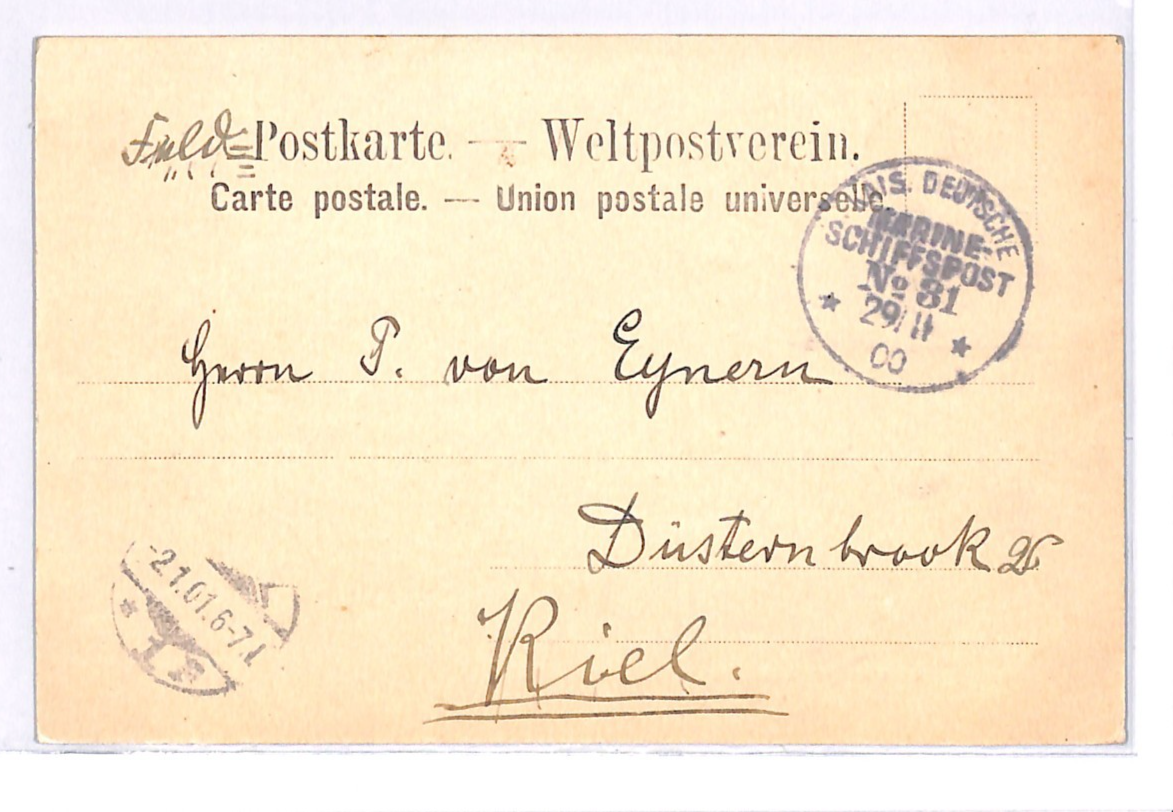 Feld=Postkarte. — Weltpostverein.
Carte postale. — Union postale universelle.
KAIS. DEUTSCHE
MARINE-
SCHIFFSPOST
No 31
29/11
00
Herrn P. von Eynern
Düsternbrook
Kiel.
-2.1.01.6-7